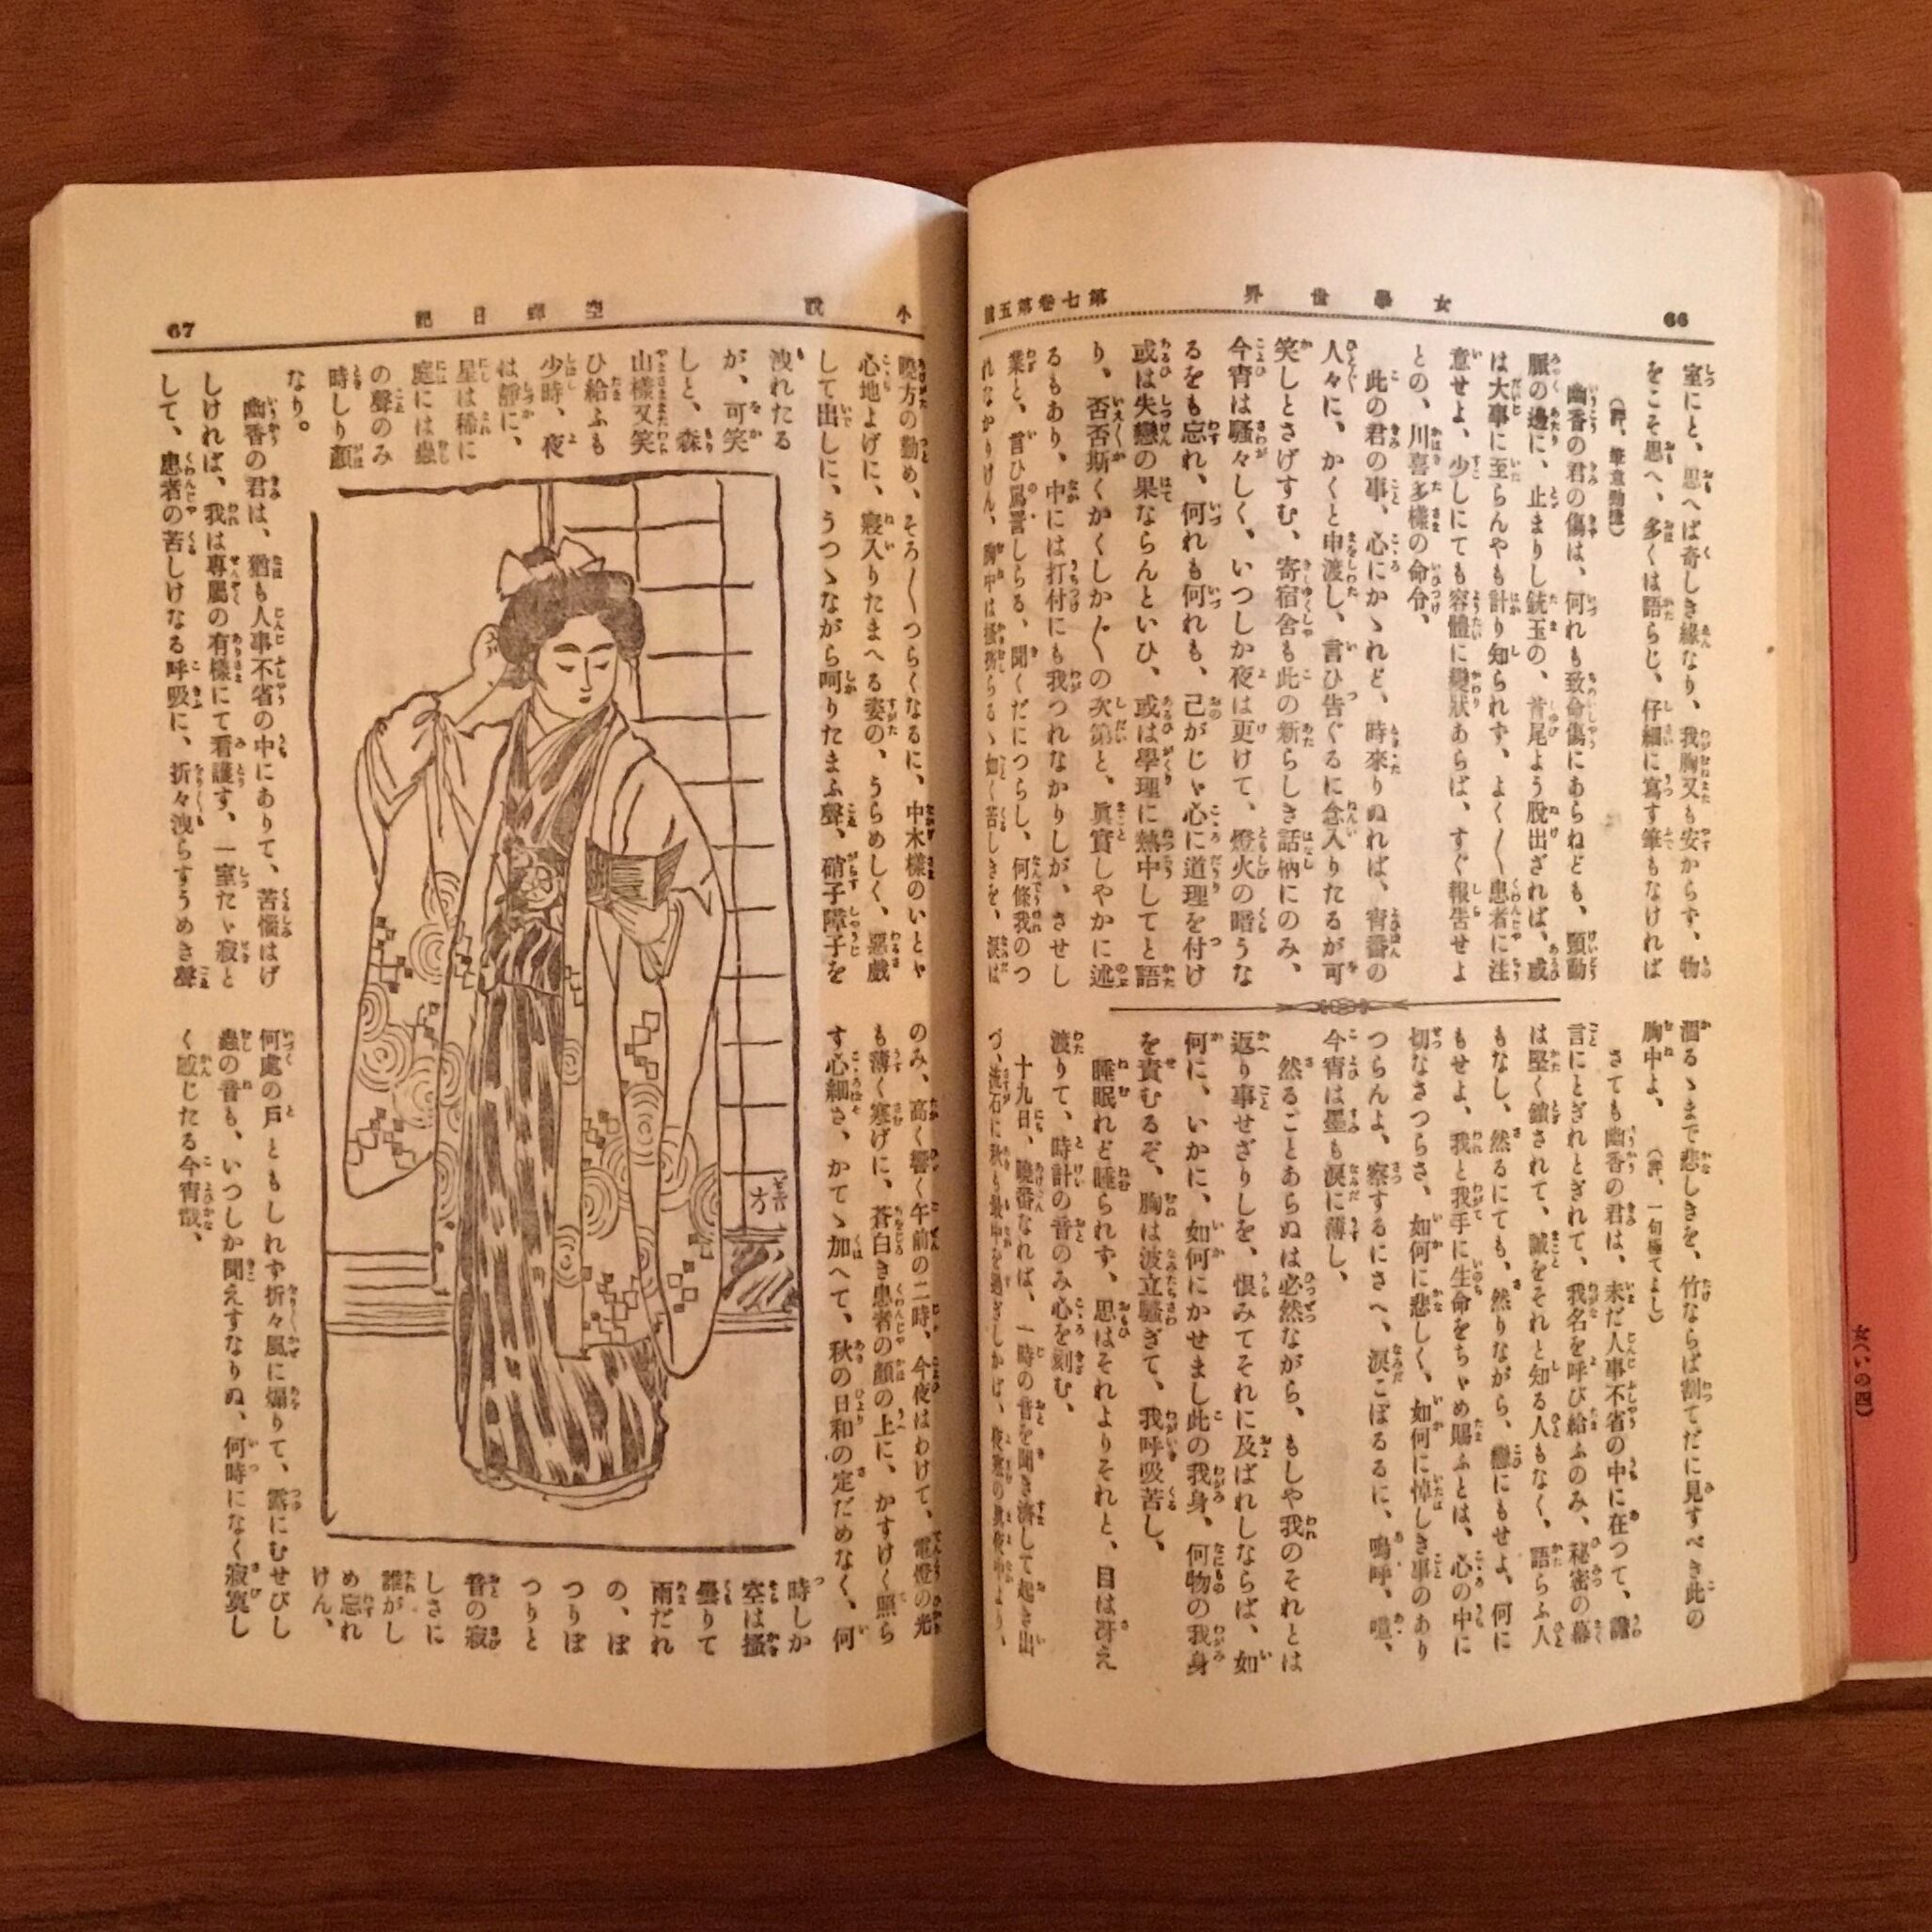 66
女學世界
第七卷第五號
室にと、思へば奇しき緣なり、我胸又も安からず、物
をこそ思へ、多くは語らじ、仔細に寫す筆もなければ
幽香の君の傷は、何れも致命傷にあらねども、頸動
脈の邊に、止まりし銃玉の、首尾よう脫出ざれば、或
は大事に至らんやも計り知られず、よく〳〵患者に注
意せよ、少しにても容體に變狀あらば、すぐ報告せよ
との、川喜多樣の命令、
此の君の事、心にかゝれど、時來りぬれば、宵番の
人々に、かくと申渡し、言ひ告ぐるに念入りたるが可
笑しとさげすむ、寄宿舍も此の新らしき話柄にのみ、
今宵は騷々しく、いつしか夜は更けて、燈火の暗うな
るをも忘れ、何れも何れも、己がじゝ心に道理を付け
或は失戀の果ならんといひ、或は學理に熱中してと語
り、否否斯くかくしか〴〵の次第と、眞實しやかに述
るもあり、中には打付にも我つれなかりしが、させし
業と、言ひ罵詈しらる、聞くだにつらし、何條我のつ
れなかりけん、胸中は掻挘らるゝ如く苦しきを、淚は
涸るゝまで悲しさを、竹ならば割てだに見すべき此の
胸中よ、(評、一句極てよし)
さても幽香の君は、未だ人事不省の中に在つて、譫
言にとぎれとぎれて、我名を呼び給ふのみ、秘密の幕
は堅く鎖されて、誠をそれと知る人もなく、語らふ人
もなし、然るにても、然りながら、戀にもせよ、何に
もせよ、我と我手に生命をちゞめ賜ふとは、心の中に
切なさつらさ、如何に悲しく、如何に悼しき事のあり
つらんよ、察するにさへ、淚こぼるるに、嗚呼、噫、
今宵は墨も淚に薄し、
然ることあらぬは必然ながら、もしや我のそれとは
返り事せざりしを、恨みてそれに及ばれしならば、如
何に、いかに、如何にかせまし此の我身、何物の我身
を責むるぞ、胸は波立騷ぎて、我呼吸苦し、
睡眠れど睡られず、思はそれよりそれと、目は冴え
渡りて、時計の音のみ心を刻む、
十九日、曉番なれば、一時の音を聞き濟して起き出
づ、流石に秋も最中を過ぎしかば、夜寒の眞夜中より、
小說 空蟬日記
67
曉方の勤め、そろ〳〵つらくなるに、中木樣のいとゞ
心地よげに、寢入りたまへる姿の、うらめしく、惡戲
して出しに、うつゝながら呵りたまふ聲、硝子障子を
洩れたる
が、可笑
しと、森
山樣又笑
ひ給ふも
少時、夜
は靜に、
星は稀に
庭には蟲
の聲のみ
時しり顏
なり。
幽香の君は、猶も人事不省の中にありて、苦惱はげ
しければ、我は專屬の有樣にて看護す、一室たゞ寂と
して、患者の苦しけなる呼吸に、折々洩らすうめき聲
のみ、高く響く午前の二時、今夜はわけて、電燈の光
も薄く寒げに、蒼白き患者の顏の上に、かすけく照ら
す心細さ、かてゝ加へて、秋の日和の定だめなく、何
時しか
空は掻
曇りて
雨だれ
の、ぽ
つりぽ
つりと
音の寂
しさに
誰がし
め忘れ
けん、
何處の戶ともしれず折々風に煽りて、露にむせびし
蟲の音も、いつしか聞えすなりぬ、何時になく寂寞し
く感じたる今宵哉、
女(いの四)